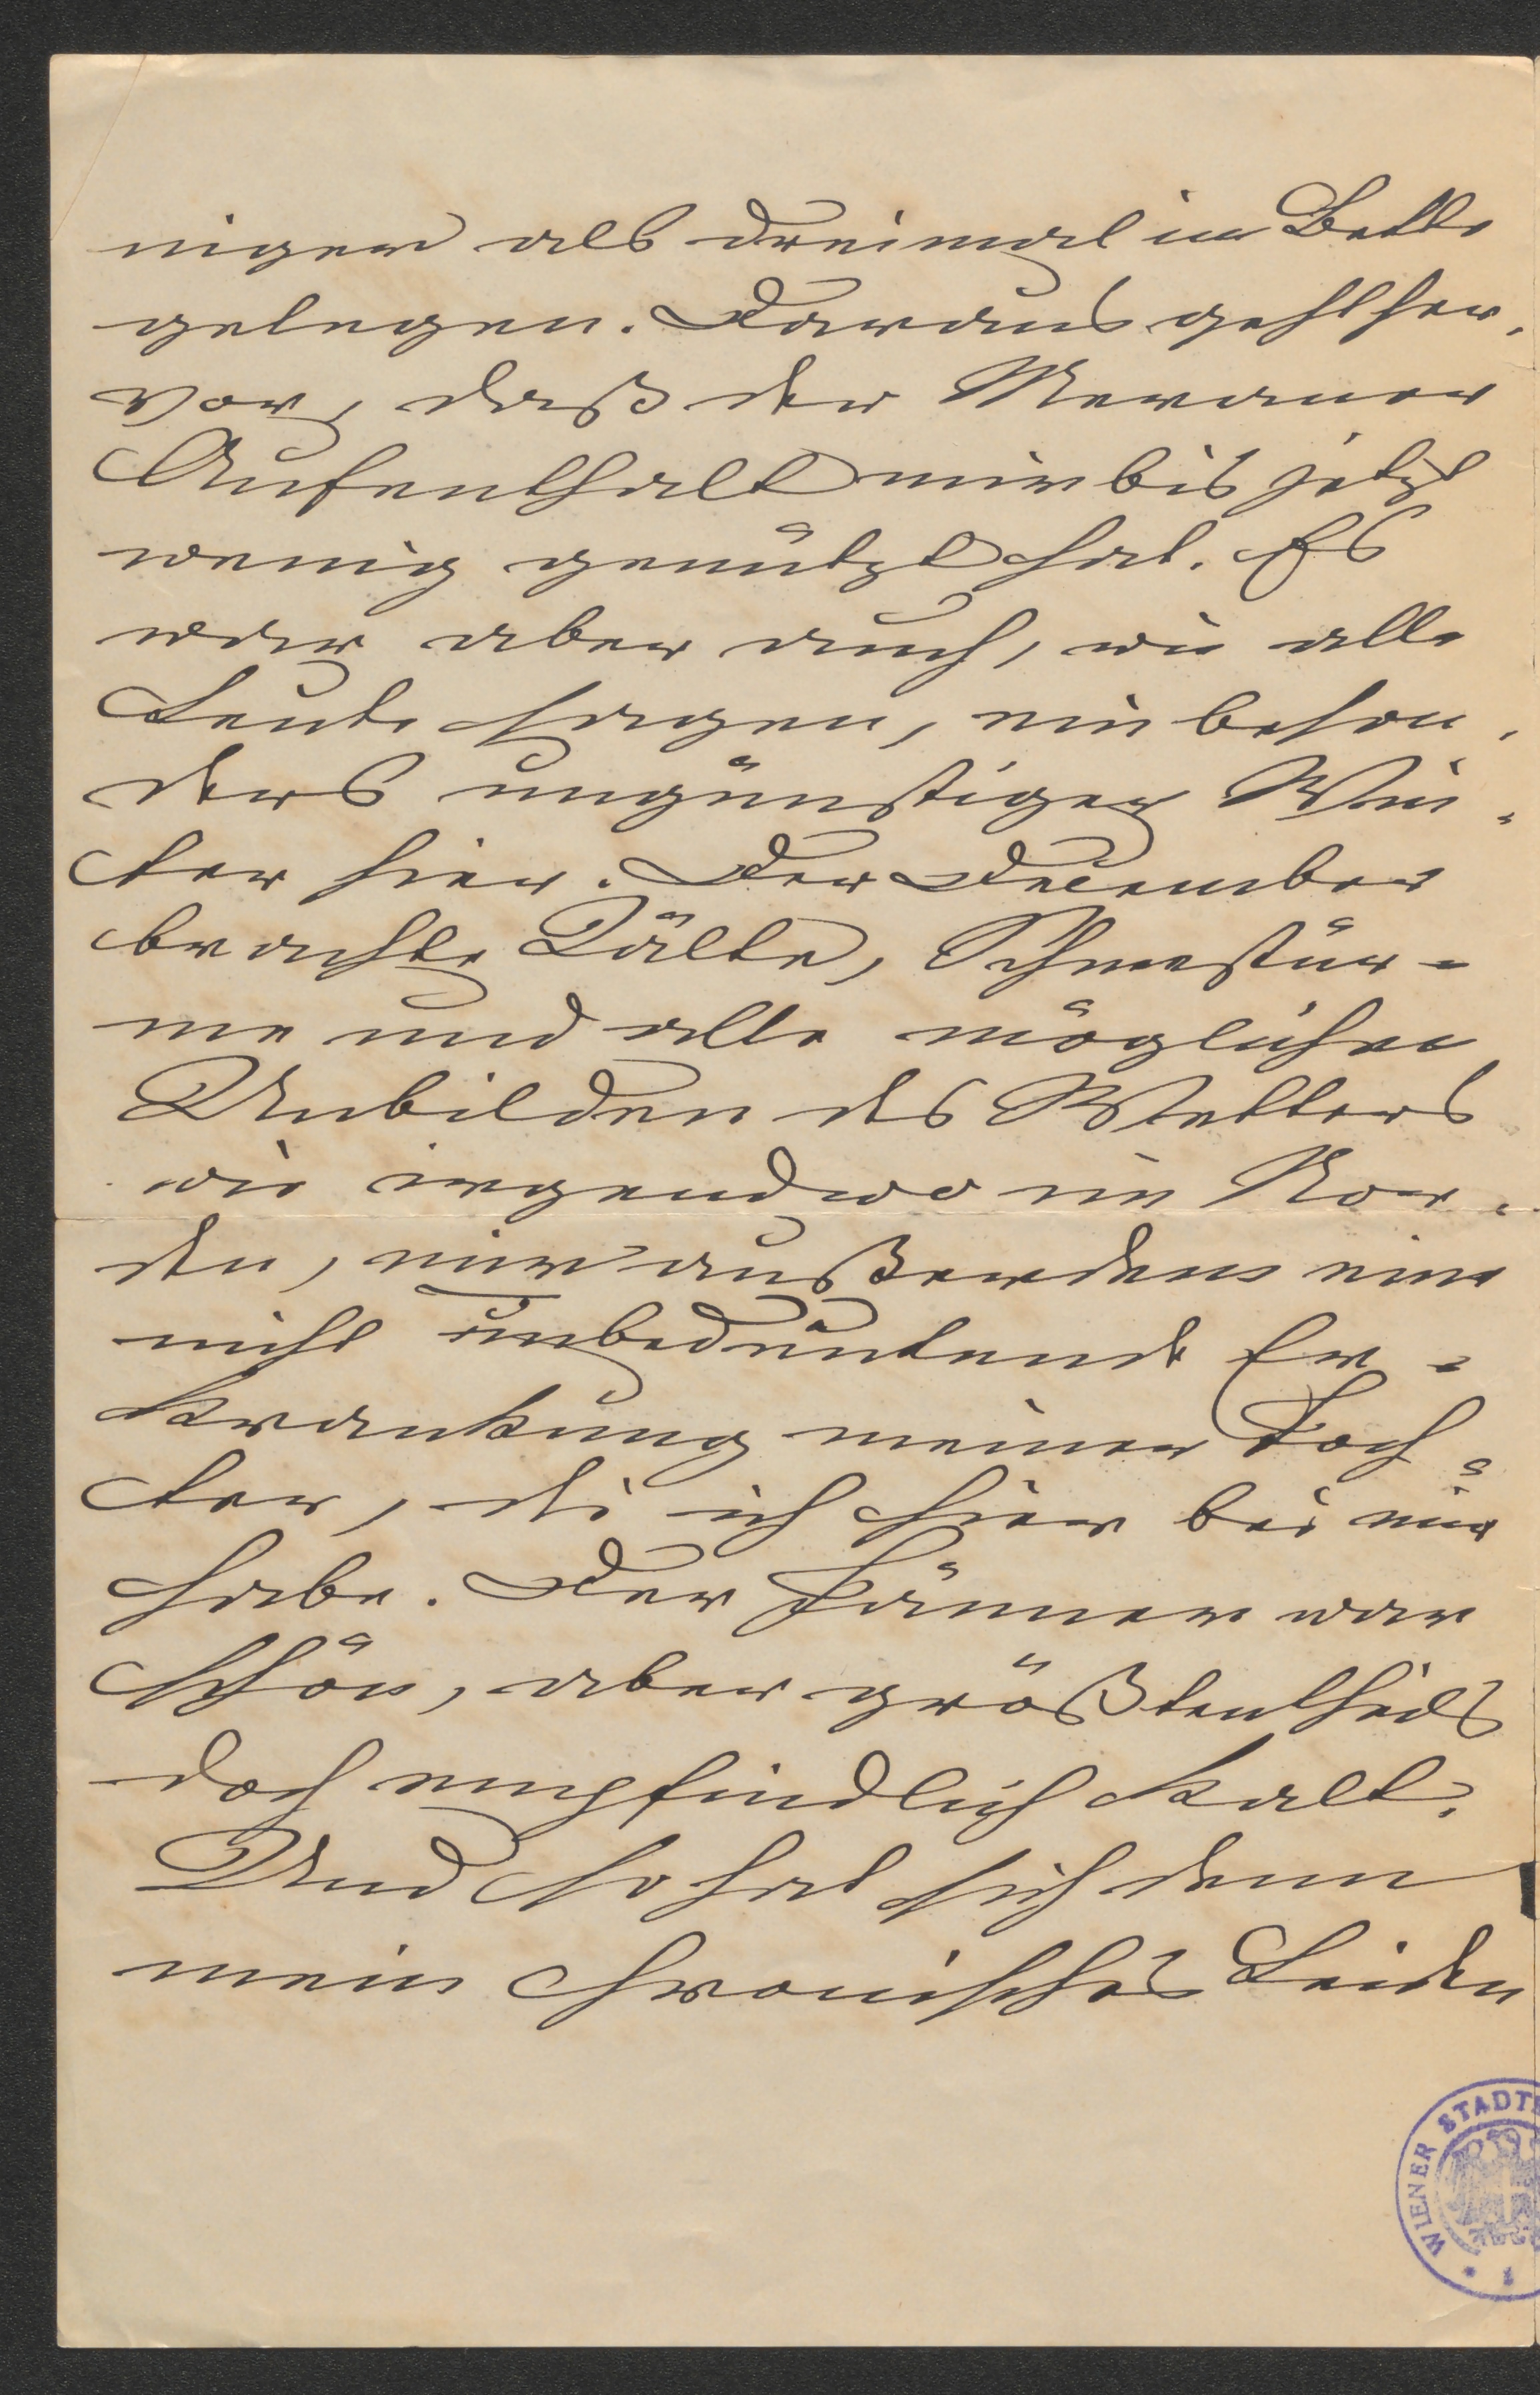 niger als dreimal im Bette
gelegen. Daraus geht her-
vor, daß der Meraner
Aufenthalt mir bis jetzt
wenig genützt hat. Es
war aber auch, wie alle
Leute sagen, ein beson-
ders ungünstiger Win-
ter hier. Der December
brachte Kälte, Schneestür-
me und alle möglichen
Unbilden des Wetters
wie irgendwo im Nor-
den, mir außerdem eine
nicht unbedeutende Er-
krankung meiner Toch-
ter, die ich hier bei mir
habe. Der Jänner war
schön, aber größtentheils
doch empfindlich kalt.
Und so hat sich denn
mein chronisches Leiden
WIENER STADT